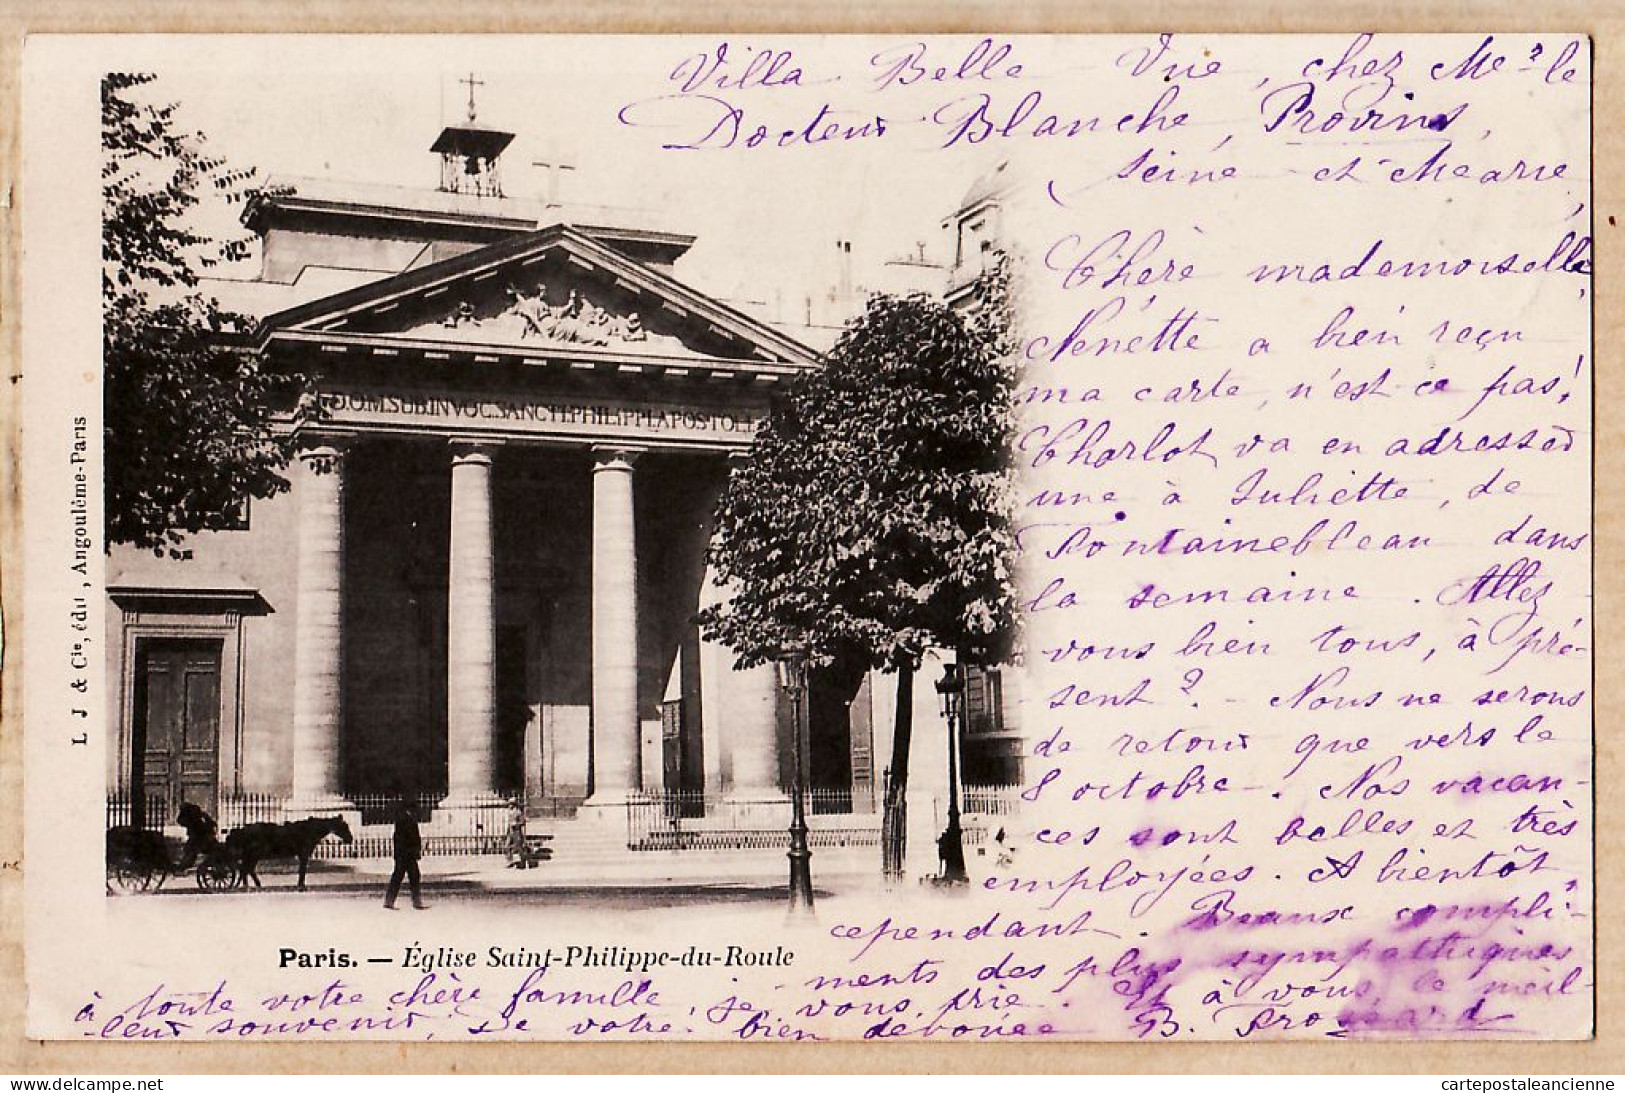 Villa Belle - Vue, chez Mr le
Docteur Blanche, Provins,
Seine et Marne,
Chère mademoiselle,
Nénette a bien reçu
ma carte, n'est-ce pas!
Charlot va en adresser
une à Juliette, de
Fontainebleau dans
la semaine. Allez-
vous bien tous, à pré-
sent? - Nous ne serons
de retour que vers le
8 octobre -. Nos vacan-
ces sont belles et très
employées. A bientôt,
cependant. Beaux compli-
ments des plus sympathiques
à toute votre chère famille, je vous prie. Et à vous, le meil-
leur souvenir, de votre bien dévouée B.
D.O.M.SUB.INVOC.SANCTI.PHILIPPI.APOSTOLI
L J & Cie, édit, Angoulême-Paris
Paris. — Église Saint-Philippe-du-Roule
Delcampe.net
cartepostaleancienne